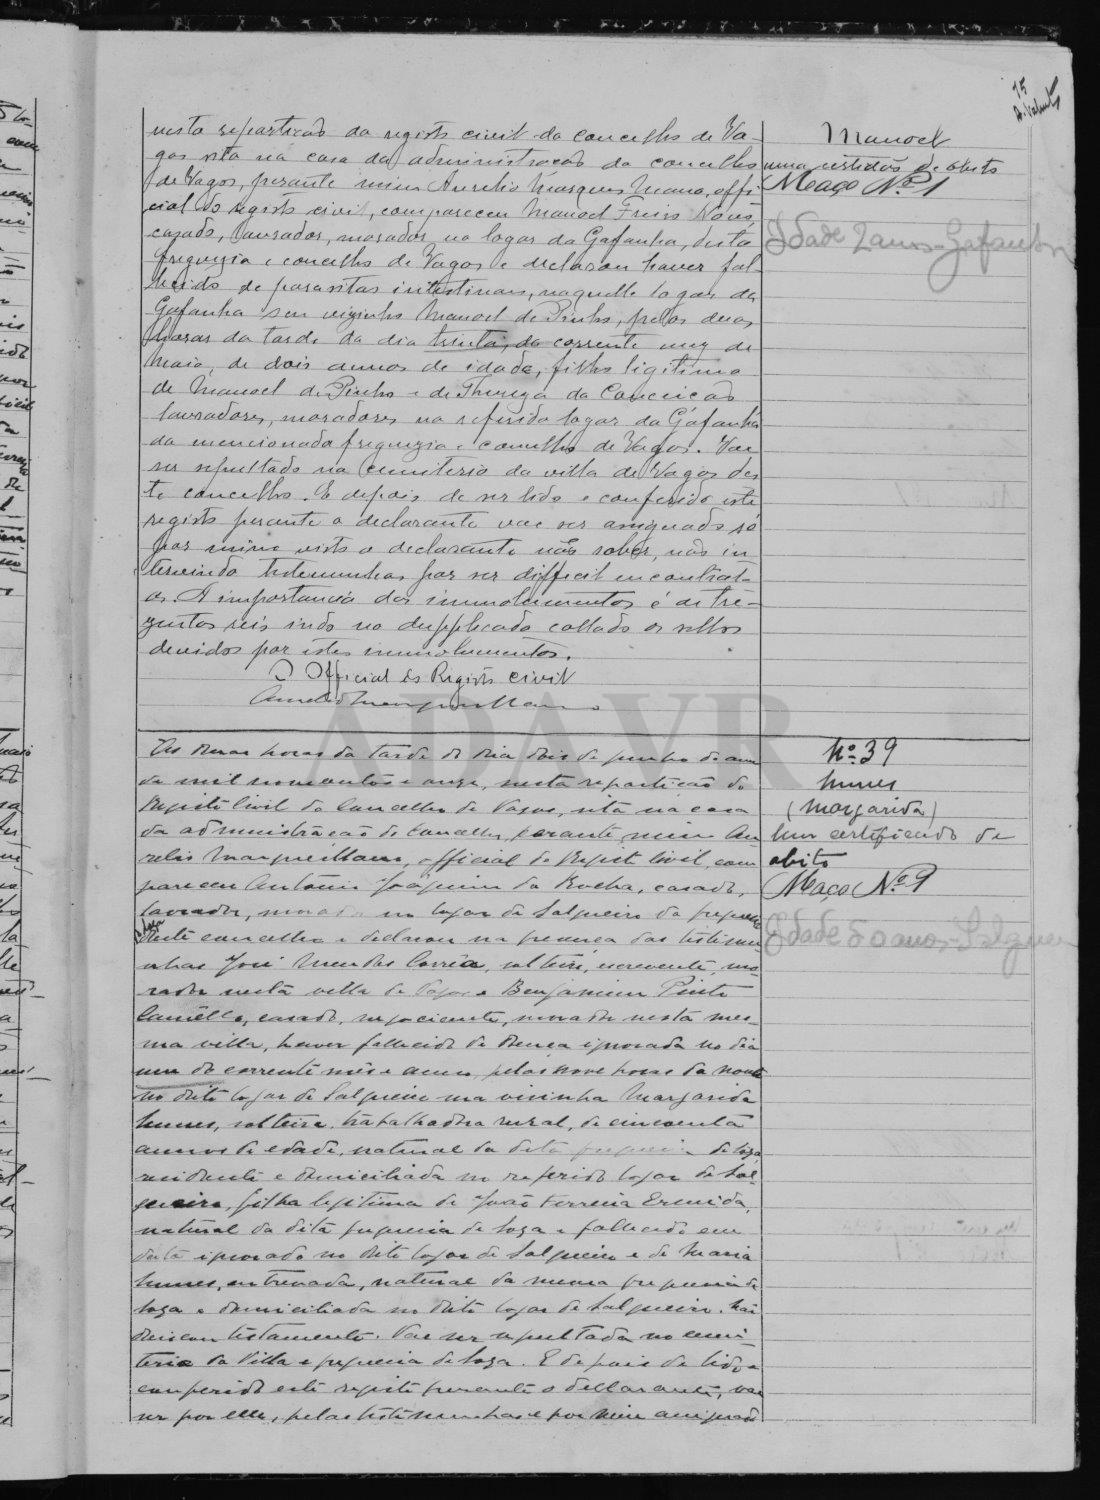 15
nesta repartição do registo civil do concelho de Va-
gos sita na casa da administração do concelho
de Vagos, perante mim Aurelio Marques Mano, offi
cial do registo civil, compareceu Manoel Freire Novo,
cazado, lavrador, morador no logar da Gafanha, desta
freguezia e concelho de Vagos e declarou haver fal-
lecido de parasitas intestinaes, naquelle logar da
Gafanha seu vezinho Manoel de Pinho, pelas duas
horas da tarde do dia trinta, do corrente mez de
Maio, de dois annos de idade, filho ligitimo
de Manoel de Pinho e de Thereza da Conceicão
lavradores, moradores no referido logar da Gafanha
da mencionada freguezia e concelho de Vagos. Vae
ser sepultado no cemiterio da villa de Vagos des
te concelho. E depois de ser lido e conferido este
registo perante o declarante vae ser assignado só
por mim visto o declarante não saber, não in
tervindo testemunhas por ser difficil encontral-
as. A importancia dos immolumentos é de tre-
zentos reis indo no dupplicado collado os sellos
devidos por estes immolumentos.
O Official do Registo civil
Aurelio Marques Mano
Manoel
uma certidão de obito
Maço Nº 1
Idade 2 annos - Gafanha
ADAVR
Ás duas horas da tarde do dia dois de junho do anno
de mil novecentos e onze, nesta repartição do
Registo Civil do Concelho de Vagos, sita na casa
da administração do Concelho, perante mim Au
relio Marques Mano, official do Registo Civil, com
pareceu Antonio Joaquim da Rocha, casado,
lavrador, morador no logar de Salgueiro da freguesia
de Soza
deste concelho e declarou na presença das testemu
nhas José Mendes Corrêa, solteiro, escrevente, mo
rador nesta villa de Vagos e Benjamim Pinto
Camêllo, casado, negociante, morador nesta mes-
ma villa, haver fallecido de doença ignorada no dia
um do corrente mês e anno, pelas nove horas da noute
no dito logar de Salgueiro sua visinha Margarida
Nunes, solteira, trabalhadora rural, de cincoenta
annos de edade, natural da dita freguesia de Soza,
residente e domiciliada no referido logar de Sal-
gueiro, filha legitima de João Ferreira Ermida,
natural da dita freguesia de Soza e fallecido em
data ignorada no dito logar de Salgueiro e de Maria
Nunes, entrevada, natural da mesma freguesia de
Soza e domiciliada no dito logar de Salgueiro. Não
deixou testamento. Vae ser sepultada no cemi
terio da Villa e freguesia de Soza. E depois de lido e
conferido este registo perante o declarante, vae
ser por elle, pelas testemunhas e por mim assignado
Nº 39
Nunes
(Margarida)
Um certificado de
obito
Maço Nº 9
Idade 50 annos - Salgueiro